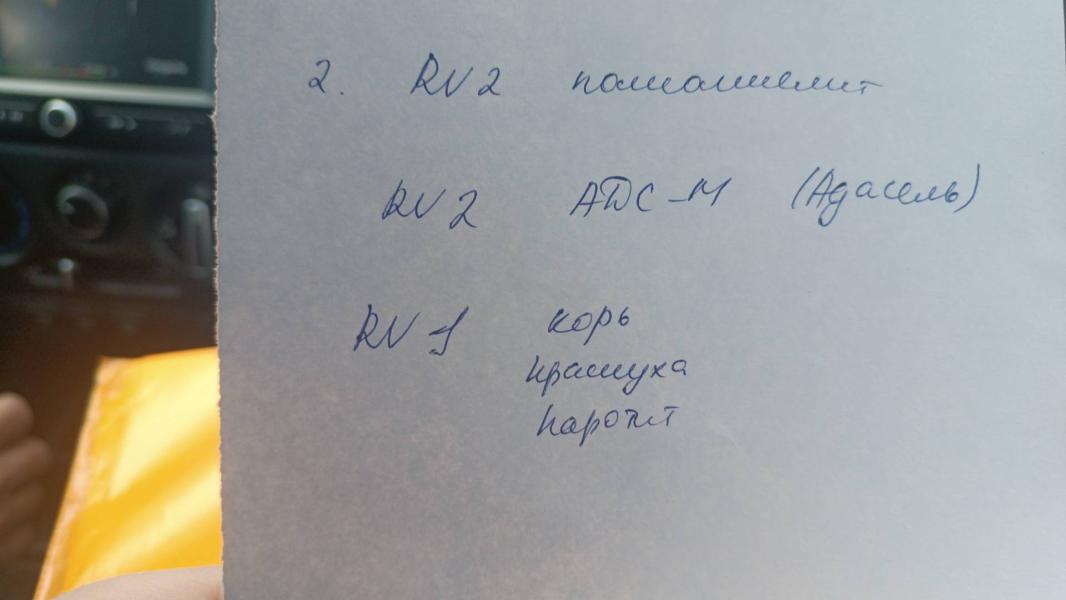 2. RV2 полиомиелит
RV2 АДС-М (Адасель)
RV1 корь
краснуха
паротит